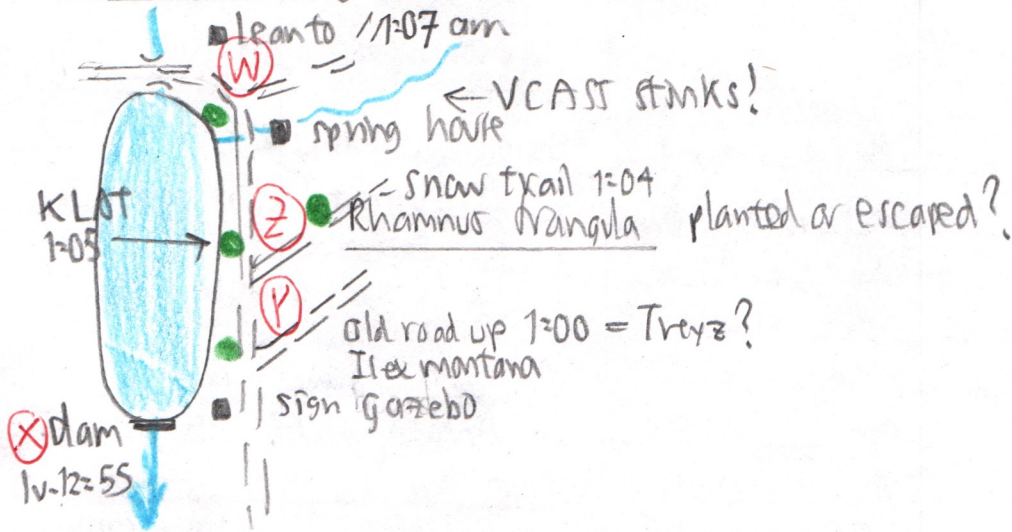 lean to 11:07 am
W
← VCASS stinks!
spring house
snow trail 1:04
Z
Rhamnus frangula planted or escaped?
1:05
Y
old road up 1:00 = Treyz?
Ilex montana
sign Gazebo
X dam
lv-12:55